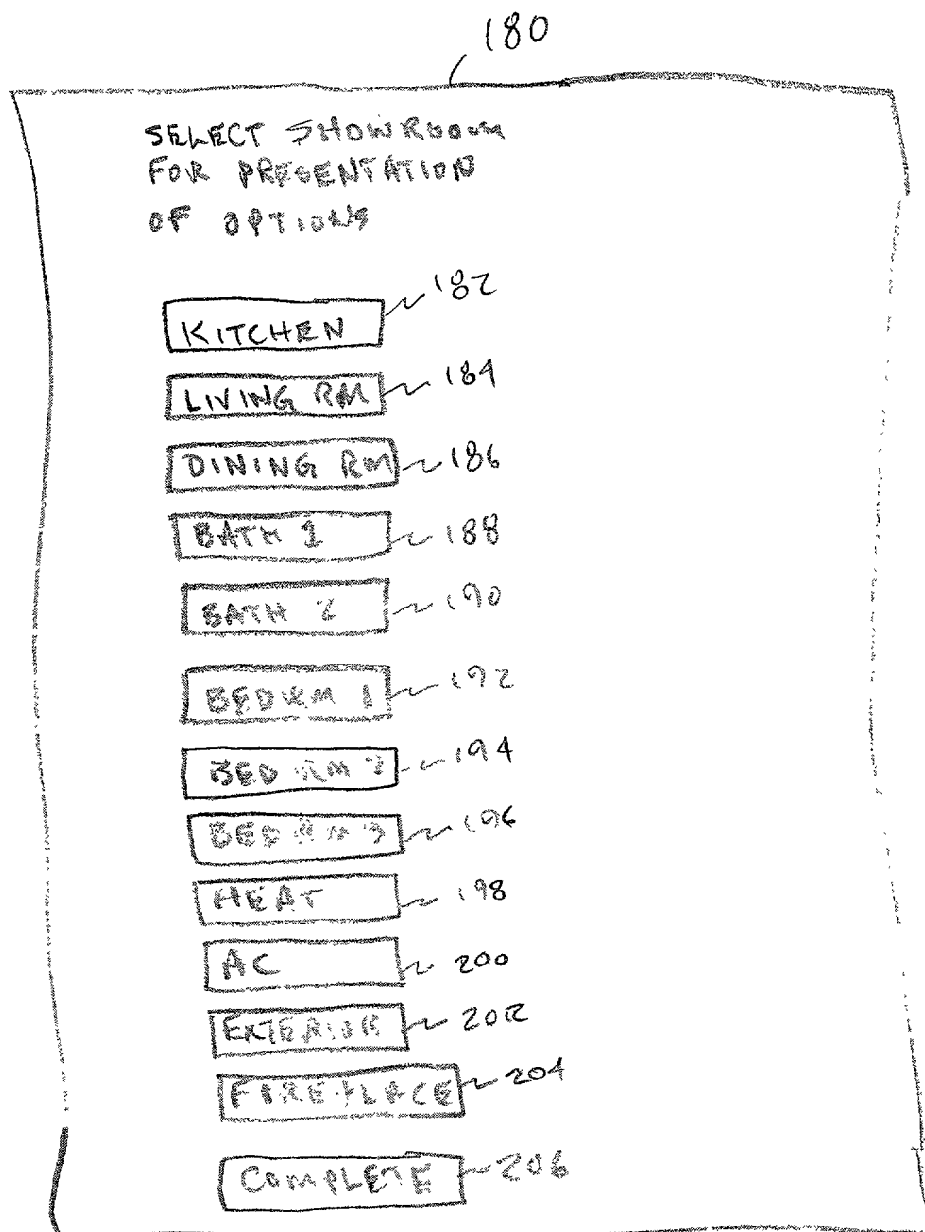 180
SELECT SHOWROOM
FOR PRESENTATION
OF OPTIONS
KITCHEN 182
LIVING RM 184
DINING RM 186
BATH 1 188
BATH 2 190
BEDRM 1 192
BED RM 2 194
BED RM 3 196
HEAT 198
AC 200
EXTERIOR 202
FIREPLACE 204
COMPLETE 206